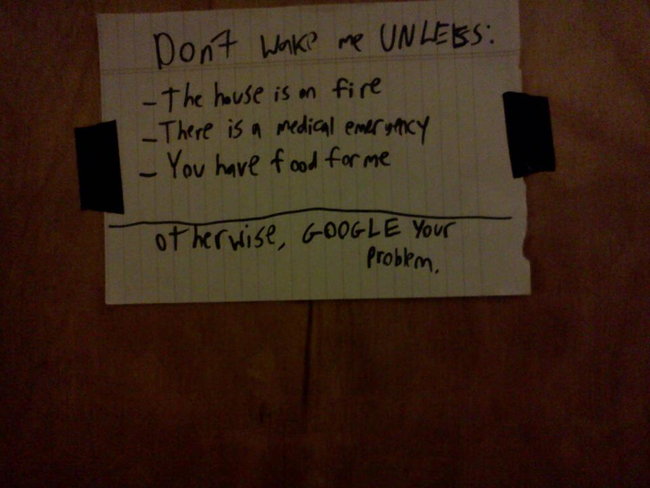 Don't wake me UNLESS:
- The house is on fire
- There is a medical emergency
- You have food for me
otherwise, GOOGLE your
problem.